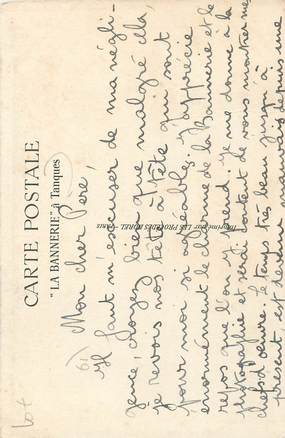 CARTE POSTALE
"LA BANNERIE" à Tanques
Imprimé par LES PROCÉDÉS BOREL - Paris
61
Mon cher Père,
Il faut m'excuser de ma négli-
gence, croyez bien que malgré cela,
je revois nos tête à tête qui sont
pour moi si agréables. J'apprécie
énormément le charme de la Bannerie et le
repos que l'on y prend. Je me donne à la
photographie et serai content de vous montrer mes
chefs d'œuvre. Le temps très beau jusqu'à
présent, est devenu mauvais depuis une